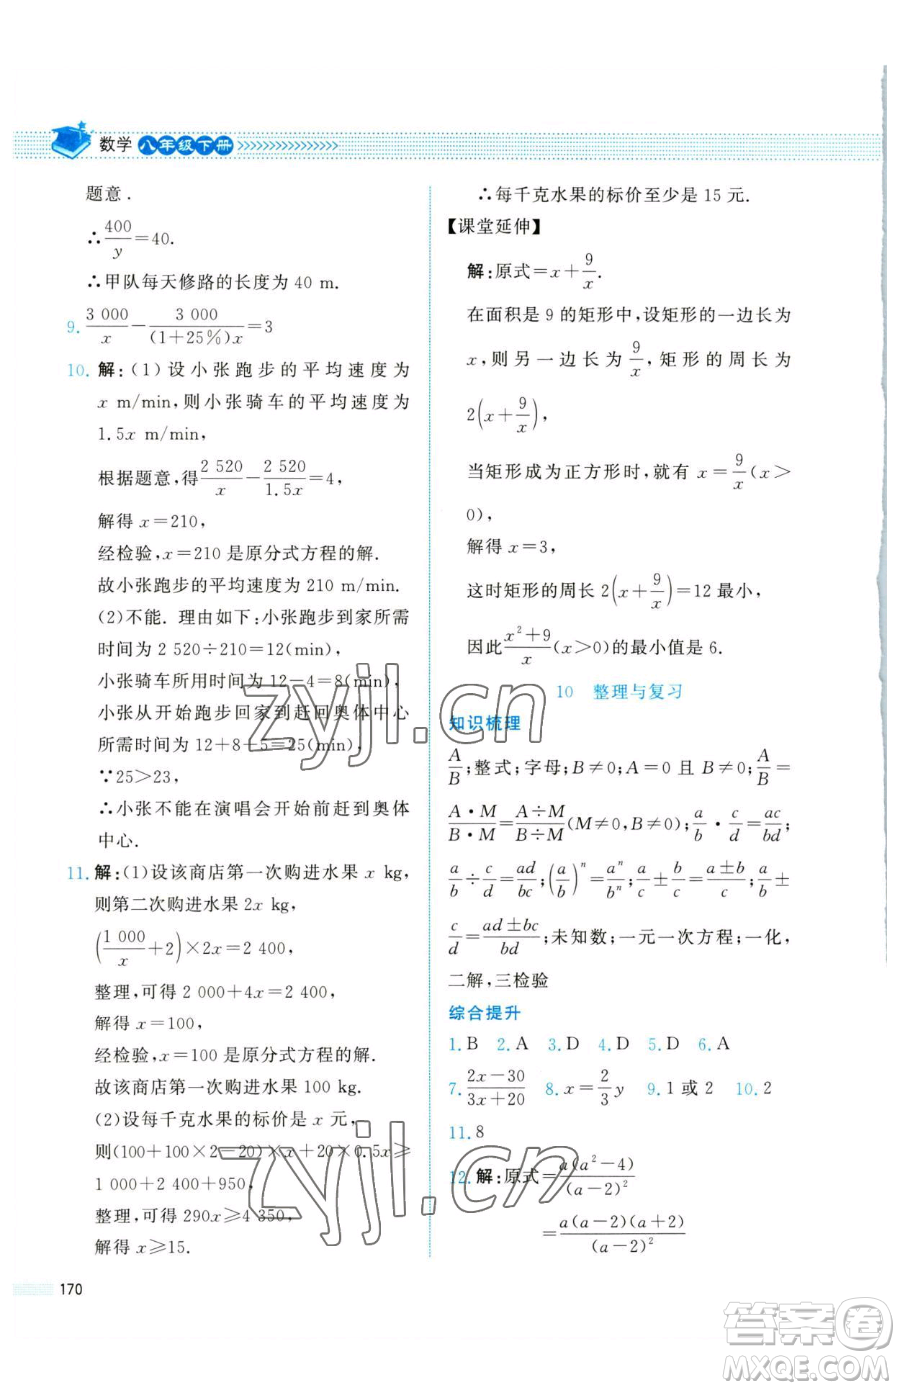 数学 八年级下册
题意.
∴400/y=40.
∴甲队每天修路的长度为 40 m.
9. 3 000/x − 3 000/((1+25%)x)=3
10. 解:(1)设小张跑步的平均速度为
x m/min,则小张骑车的平均速度为
1.5x m/min,
根据题意,得 2 520/x − 2 520/1.5x=4,
解得 x=210,
经检验,x=210 是原分式方程的解.
故小张跑步的平均速度为 210 m/min.
(2)不能. 理由如下:小张跑步到家所需
时间为 2 520÷210=12(min),
小张骑车所用时间为 12−4=8(min),
小张从开始跑步回家到赶回奥体中心
所需时间为 12+8+5=25(min),
∵25>23,
∴小张不能在演唱会开始前赶到奥体
中心.
11. 解:(1)设该商店第一次购进水果 x kg,
则第二次购进水果 2x kg,
(1 000/x+2)×2x=2 400,
整理,可得 2 000+4x=2 400,
解得 x=100,
经检验,x=100 是原分式方程的解.
故该商店第一次购进水果 100 kg.
(2)设每千克水果的标价是 x 元,
则(100+100×2−20)×x+20×0.5x≥
1 000+2 400+950,
整理,可得 290x≥4 350,
解得 x≥15.
∴每千克水果的标价至少是 15 元.
【课堂延伸】
解:原式=x+9/x.
在面积是 9 的矩形中,设矩形的一边长为
x,则另一边长为 9/x,矩形的周长为
2(x+9/x),
当矩形成为正方形时,就有 x=9/x(x>
0),
解得 x=3,
这时矩形的周长 2(x+9/x)=12 最小,
因此 (x²+9)/x(x>0)的最小值是 6.
10 整理与复习
知识梳理
A/B;整式;字母;B≠0;A=0 且 B≠0;A/B=
A·M/B·M=A÷M/B÷M(M≠0,B≠0);a/b·c/d=ac/bd;
a/b÷c/d=ad/bc;(a/b)ⁿ=aⁿ/bⁿ;a/c±b/c=(a±b)/c;a/b±
c/d=(ad±bc)/bd;未知数;一元一次方程;一化,
二解,三检验
综合提升
1. B 2. A 3. D 4. D 5. D 6. A
7. (2x−30)/(3x+20) 8. x=2/3y 9. 1 或 2 10. 2
11. 8
12. 解:原式=a(a²−4)/(a−2)²
=a(a−2)(a+2)/(a−2)²
170
zyjl.cn
zyjl.cn
答案圈
MXQE.COM